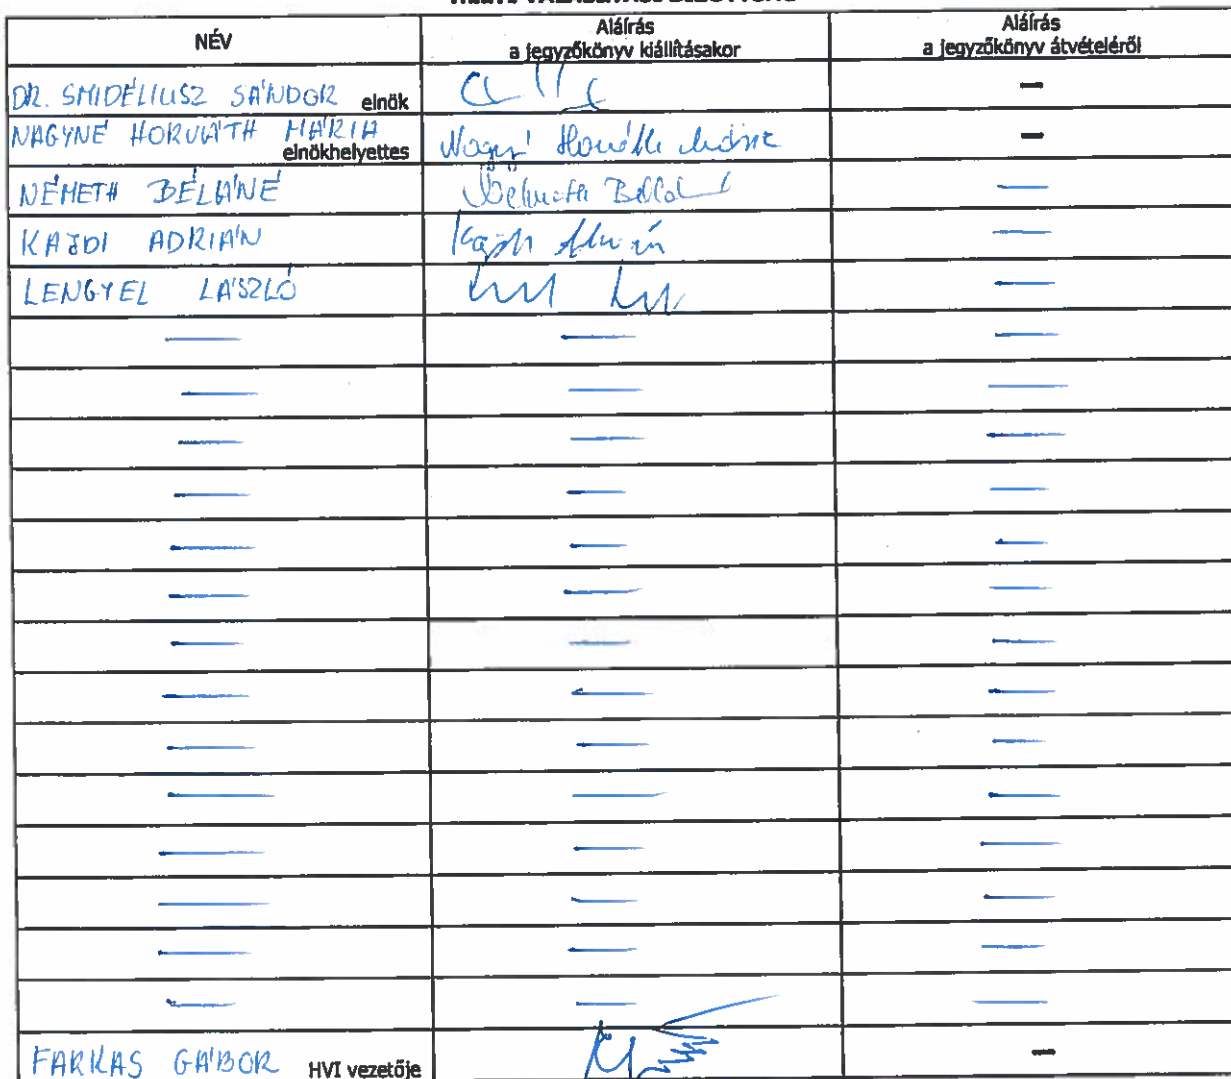 NÉV
Aláírás
a jegyzőkönyv kiállításakor
Aláírás
a jegyzőkönyv átvételéről
DR. SMIDÉLIUSZ SÁNDOR elnök
—
NAGYNÉ HORVÁTH MÁRIA
elnökhelyettes
—
NÉMETH BÉLÁNÉ
—
KAJDI ADRIÁN
—
LENGYEL LÁSZLÓ
—
— — —
— — —
— — —
— — —
— — —
— — —
— — —
— — —
— — —
— — —
— — —
— — —
— — —
— — —
FARKAS GÁBOR HVI vezetője
—